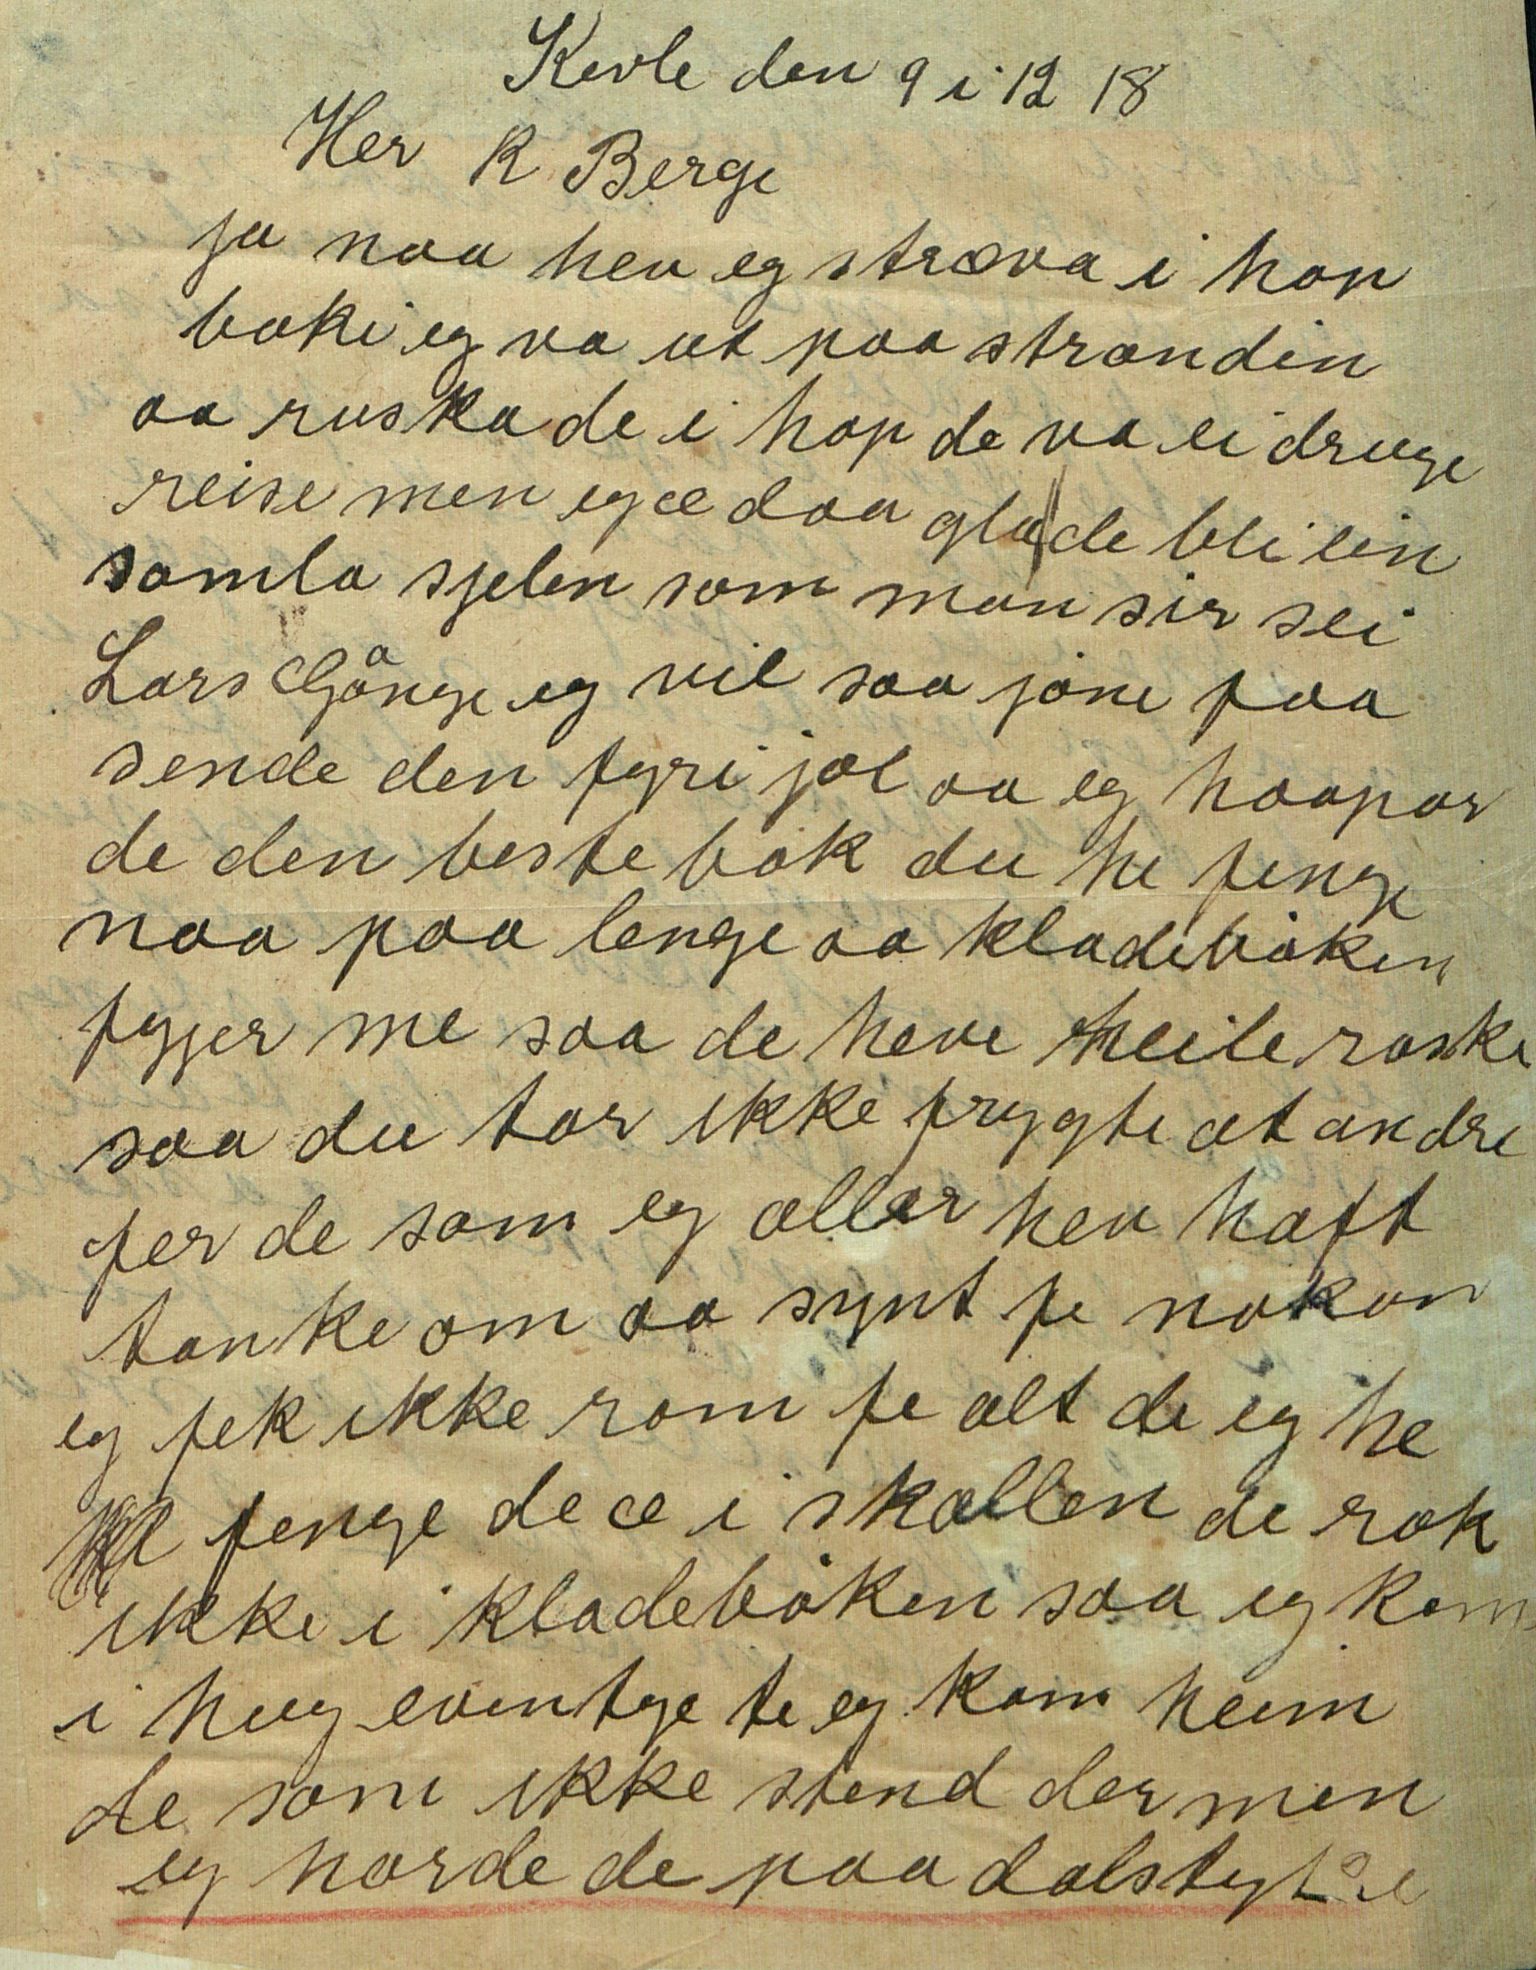 Kevle den 9 i 12 18
Her R Berge
ja naa hev eg stræva i hop
boki eg va ut paa strandin
aa ruska de i hop de va ei druge
reise men eg æ daa glade bli ein
samla sjelen som man sir sei
Lars Gånge eg vil saa jone faa
sende den fyri jol aa eg haapar
de den beste bok du he fenge
naa paa lenge aa kladeboken
fyjer me saa de heve heile raske
saa du tar ikke frygte at andre
fer de som eg allar hev haft
tanke om aa synt fe nokon
eg fek ikke rom fe alt de eg he
fenge de æ i skallen de rak
ikke i kladeboken saa eg kom
i hug eventye te eg kom heim
de som ikke stend der men
eg horde de paa